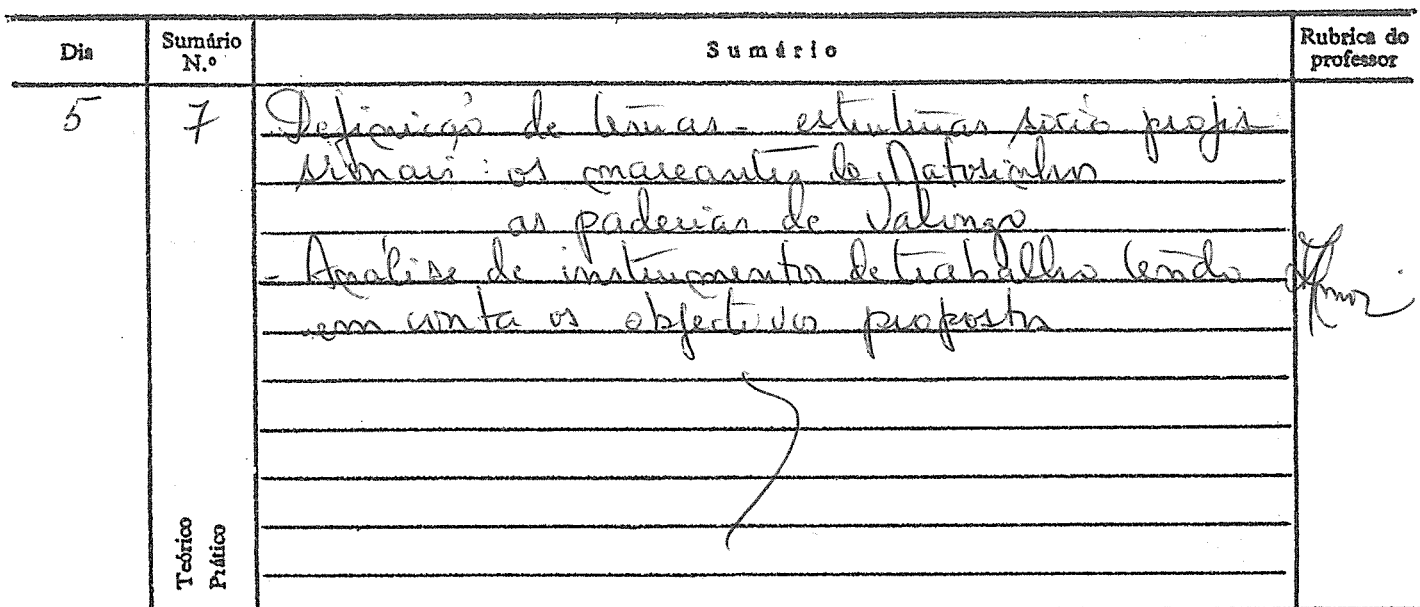 Dia Sumário N.º Sumário Rubrica do professor
5 7 Definição de temas - estruturas sócio profis
sionais: os mareantes de Matosinhos
as padeiras de Valongo
- Análise de instrumentos de trabalho tendo
em conta os objectivos propostos
Teórico
Prático